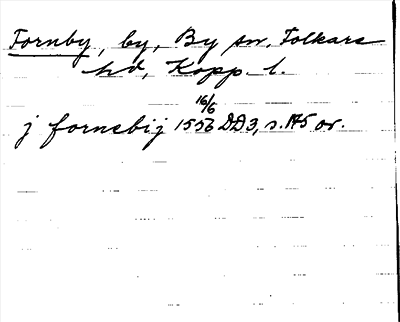 Fornby, by, By sn. Folkare
hd, Kopp. l.
16/6
j fornebij 1556 DD3, s. 175 or.